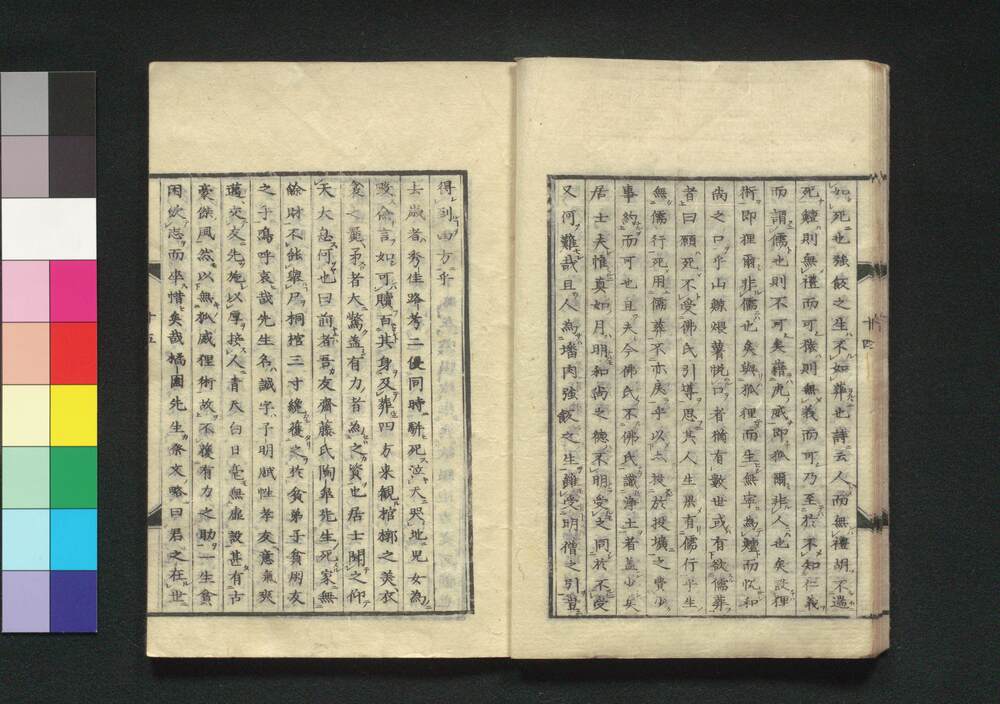 如死也強飲之生不如葬也詩云人而無禮胡不遄
死鱣則無禮而可獲則無義而可乃至於不知仁義
而謂儒也則不可矣藉虎威即狐爾非人也矣設狸
術即狸爾非儒也矣與狐狸而生無寧為鱣而忱和
尚之口乎山鰍煨薯悅口者猶有數世或有欲儒葬
者曰願死不受佛氏引導思其人生果有儒行乎生
無儒行死用儒葬不亦戾乎以之授於投壙之費少
事約而可也且夫今佛氏不佛氏識淨土者蓋少矣
居士夫惟真如月明和尚之德不明受之同於不受
又何難哉且人為墦肉強飲之生雖受明僧之引導
十四
得到西方乎
去歲者秀佳路考二優同時駢死泣天哭地兒女為
毀俗言如可贖百其身及葬四方來觀棺槨之美衣
衾之麗弔者大驚蓋有力者為之資也居士聞之仰
天大息何也曰前者吾友齋藤氏陶皐先生死家無
餘財不能舉尸桐棺三寸纔獲之於貧弟子貧朋友
之手嗚呼哀哉先生名誠字子明賦性孝友意氣爽
邁交友先施以厚接人青天白日毫無虛設甚有古
豪傑風然以無狐威狸術故不獲有力之助一生貧
困飲志而卒惜矣哉橘園先生祭文略曰君之在世
十五